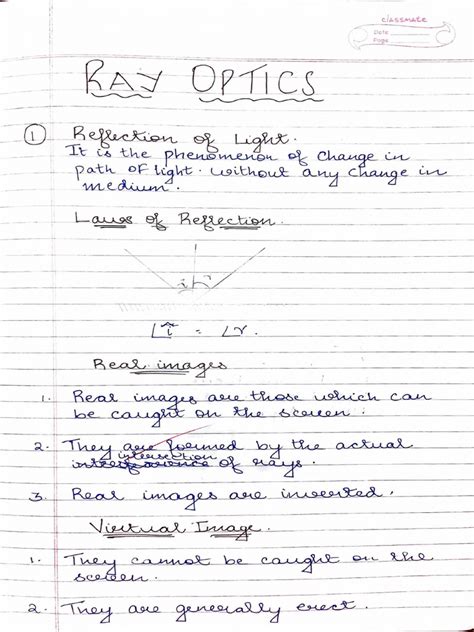 classmate
Date
Page
RAY OPTICS
① Reflection of Light.
It is the phenomenon of change in
path of light. without any change in
medium.
Laws of Reflection.
i r
∠i = ∠r.
Real images
1. Real images are those which can
be caught on the screen.
2. They are formed by the actual
intersection
interference of rays.
3. Real images are inverted.
Virtual Image.
1. They cannot be caught on the
screen.
2. They are generally erect.